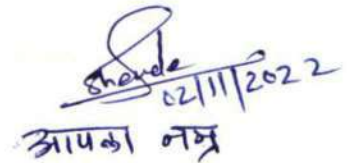 Shende
02/11/2022
आपका नम्र